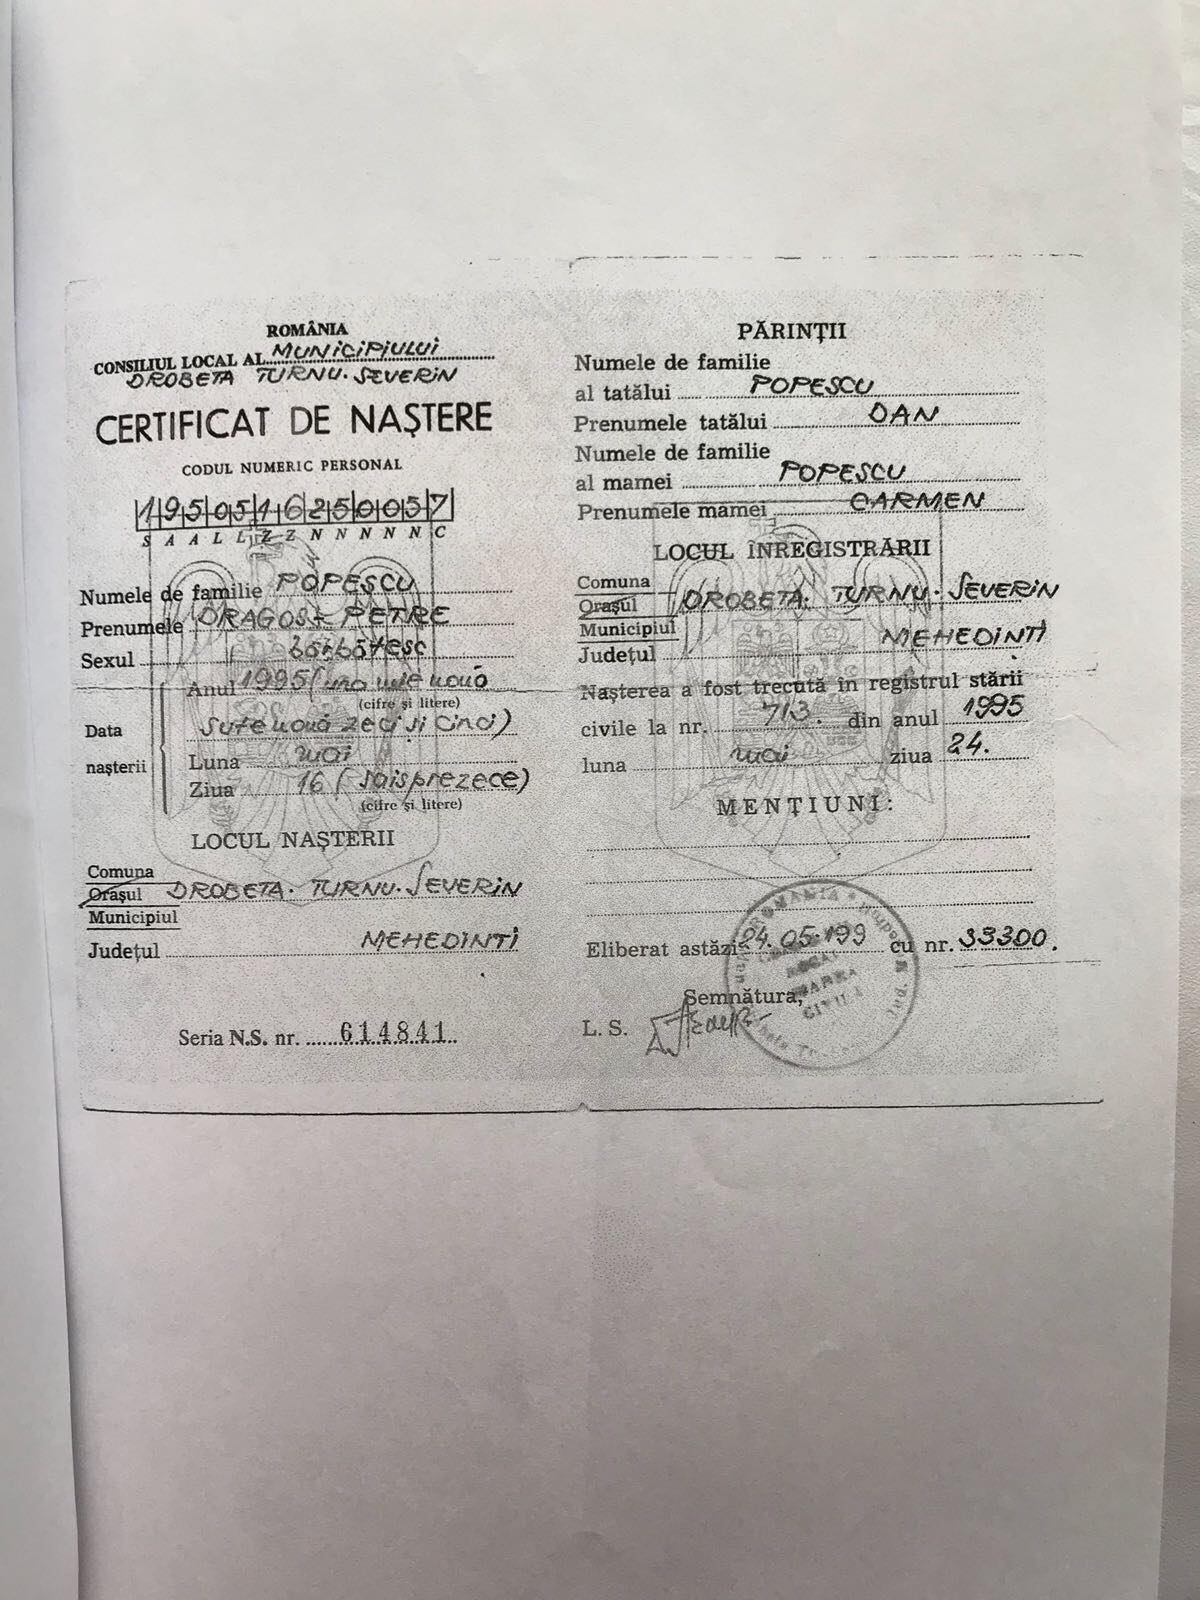 ROMÂNIA
CONSILIUL LOCAL AL MUNiCiPiULUi
DROBETA TURNU·SEVERiN
CERTIFICAT DE NAȘTERE
CODUL NUMERIC PERSONAL
1950516250057
S A A L L Z Z N N N N N C
Numele de familie POPESCU
Prenumele DRAGOȘ-PETRE
Sexul bărbătesc
Anul 1995 (una mie nouă
(cifre și litere)
Data
sute nouă zeci și cinci)
Luna mai
nașterii
Ziua 16 (șaisprezece)
(cifre și litere)
LOCUL NAȘTERII
Comuna
Orașul DROBETA· TURNU·SEVERiN
Municipiul
Județul MEHEDiNTi
Seria N.S. nr. 614841
PĂRINȚII
Numele de familie
al tatălui POPESCU
Prenumele tatălui DAN
Numele de familie
al mamei POPESCU
Prenumele mamei CARMEN
LOCUL ÎNREGISTRĂRII
Comuna
Orașul DROBETA· TURNU·SEVERiN
Municipiul
Județul MEHEDiNTi
Nașterea a fost trecută în registrul stării
civile la nr. 713. din anul 1995
luna mai ziua 24.
MENȚIUNI:
Eliberat astăzi 24.05.199 cu nr. 33300.
Semnătura,
L. S.
ROMANIA